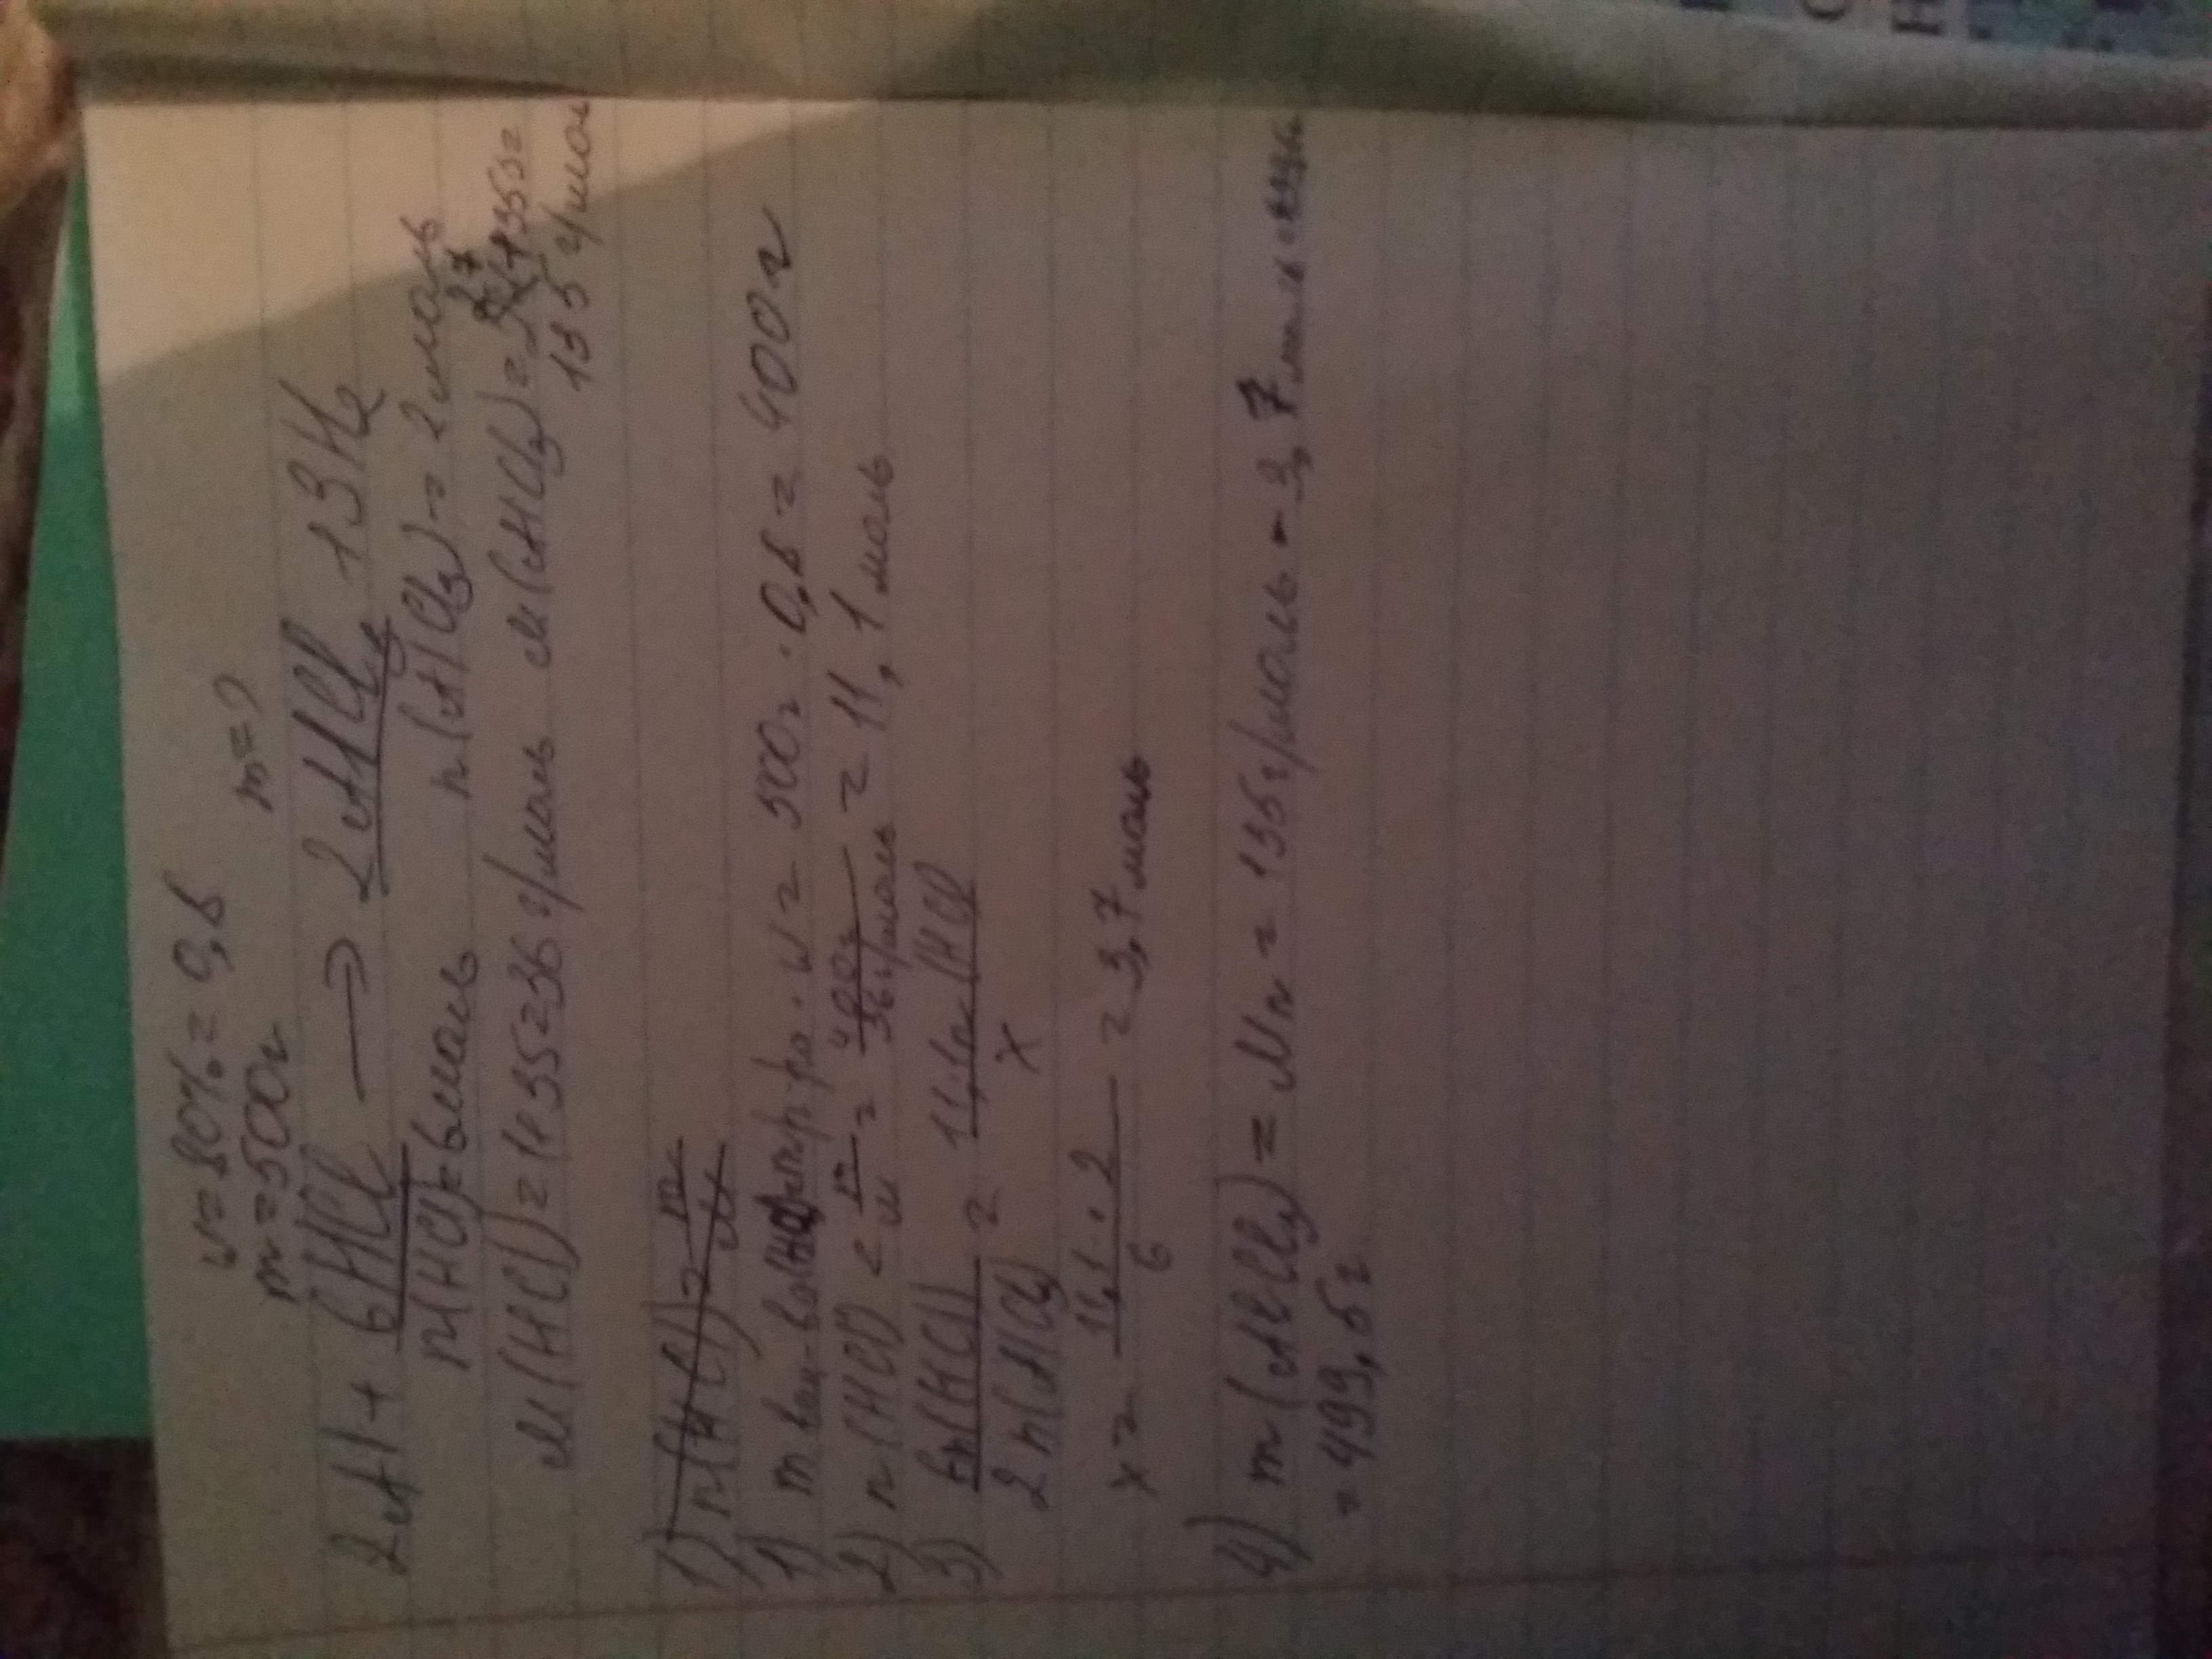 w = 80% = 0,8
m = 500г m = ?
2Al + 6HCl → 2AlCl3 + 3H2
n(HCl) = 6моль n(AlCl3) = 2моль
M(HCl) = 1+35=36 г/моль M(AlCl3) =
135 г/мол
1) n(HCl) = m/M
1) m вещ-ва(HCl) = m р-ра · w = 500г · 0,8 = 400г
2) n(HCl) = m/M = 400г/36г/моль = 11,1 моль
3) 6n(HCl)/2n(AlCl3) = 11,1n(HCl/x
x = 11,1 · 2/6 = 3,7 моль
4) m(AlCl3) = Mn = 135г/моль · 3,7 моль
= 499,5г